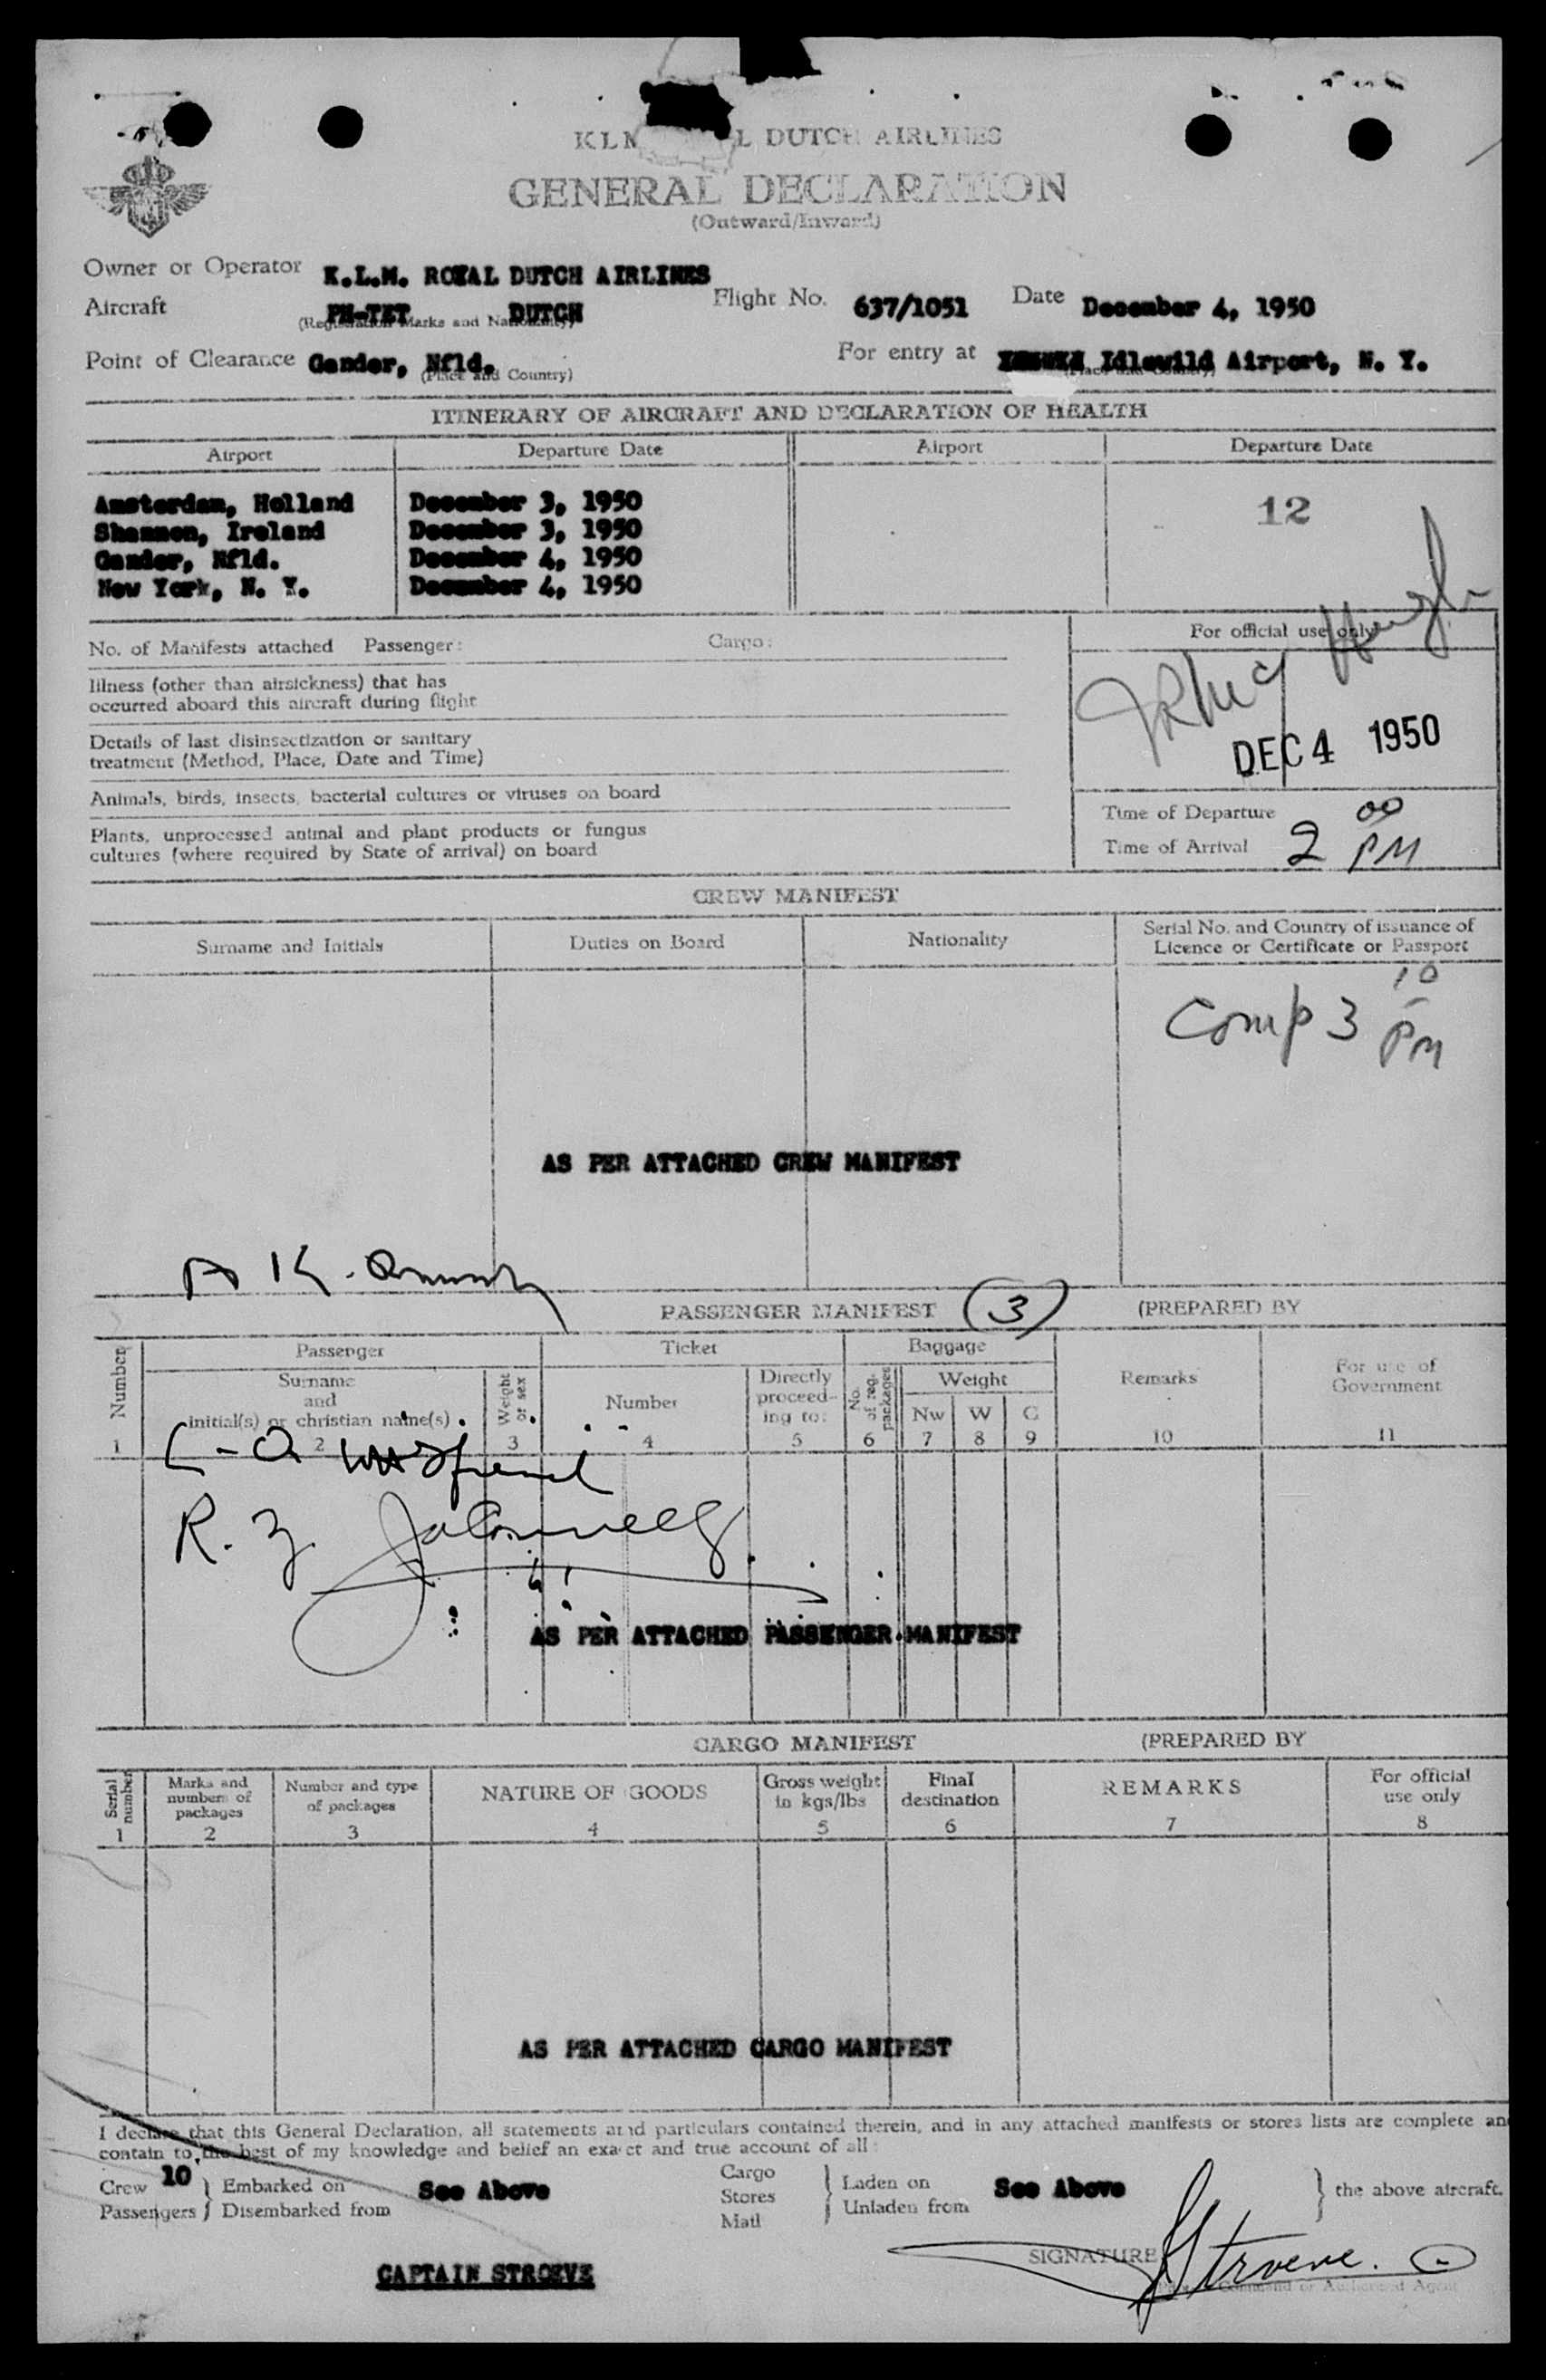 KLM L DUTCH AIRLINES
GENERAL DECLARATION
(Outward/Inward)
Owner or Operator K.L.M. ROYAL DUTCH AIRLINES
Aircraft PH-TET DUTCH Flight No. 637/1051 Date December 4, 1950
(Registration Marks and Nationality)
Point of Clearance Gander, Nfld. For entry at Idlewild Airport, N. Y.
(Place and Country)
ITINERARY OF AIRCRAFT AND DECLARATION OF HEALTH
Airport Departure Date Airport Departure Date
Amsterdam, Holland December 3, 1950 12
Shannon, Ireland December 3, 1950
Gander, Nfld. December 4, 1950
New York, N. Y. December 4, 1950
No. of Manifests attached Passenger: Cargo:
For official use only
Illness (other than airsickness) that has
occurred aboard this aircraft during flight
Details of last disinsectization or sanitary
treatment (Method, Place, Date and Time)
DEC 4 1950
Animals, birds, insects, bacterial cultures or viruses on board
Plants, unprocessed animal and plant products or fungus
cultures (where required by State of arrival) on board
Time of Departure
Time of Arrival 2 00 PM
CREW MANIFEST
Surname and Initials Duties on Board Nationality Serial No. and Country of issuance of
Licence or Certificate or Passport
Comp 3 10 PM
AS PER ATTACHED CREW MANIFEST
A K.
PASSENGER MANIFEST (3) (PREPARED BY
Number Passenger Ticket Baggage Remarks For use of
Government
Surname
and
initial(s) or christian name(s) Weight
or sex Number Directly
proceed-
ing to: No.
of reg.
packages Weight
Nw W C
1 2 3 4 5 6 7 8 9 10 11
R. Z.
AS PER ATTACHED PASSENGER MANIFEST
CARGO MANIFEST (PREPARED BY
Serial
number Marks and
numbers of
packages Number and type
of packages NATURE OF GOODS Gross weight
in kgs/lbs Final
destination REMARKS For official
use only
1 2 3 4 5 6 7 8
AS PER ATTACHED CARGO MANIFEST
I declare that this General Declaration, all statements and particulars contained therein, and in any attached manifests or stores lists are complete an
contain to the best of my knowledge and belief an exact and true account of all:
Crew 10 } Embarked on See Above Cargo } Laden on See Above } the above aircraft.
Passengers } Disembarked from Stores } Unladen from
Mail
CAPTAIN STROEVE
SIGNATURE Stroeve.
Command or Authorised Agent